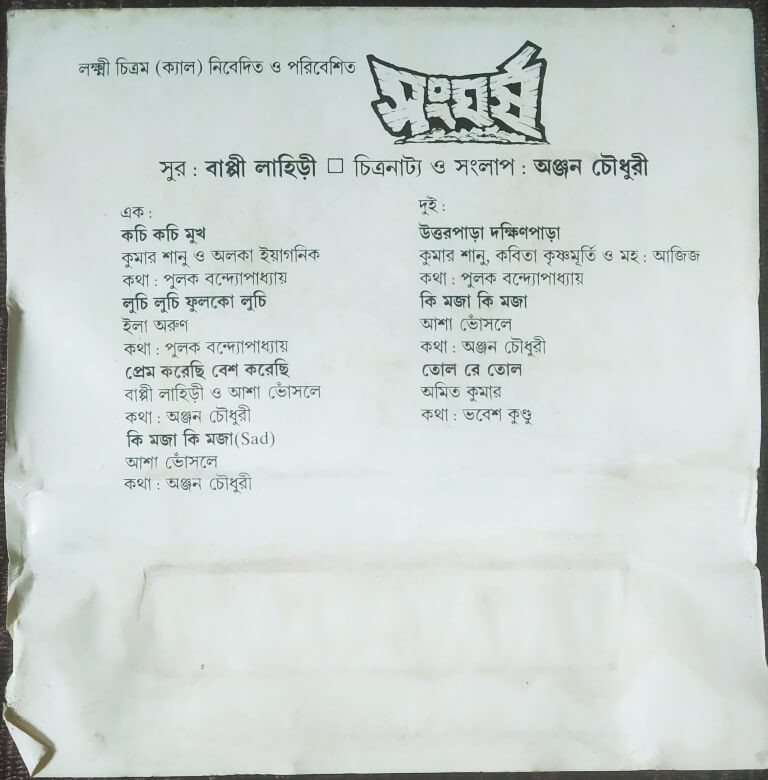 লক্ষ্মী চিত্রম (ক্যাল) নিবেদিত ও পরিবেশিত
সংঘর্ষ
সুর : বাপ্পী লাহিড়ী □ চিত্রনাট্য ও সংলাপ : অঞ্জন চৌধুরী
এক :
কচি কচি মুখ
কুমার শানু ও অলকা ইয়াগনিক
কথা : পুলক বন্দ্যোপাধ্যায়
লুচি লুচি ফুলকো লুচি
ইলা অরুণ
কথা : পুলক বন্দ্যোপাধ্যায়
প্রেম করেছি বেশ করেছি
বাপ্পী লাহিড়ী ও আশা ভোঁসলে
কথা : অঞ্জন চৌধুরী
কি মজা কি মজা(Sad)
আশা ভোঁসলে
কথা : অঞ্জন চৌধুরী
দুই :
উত্তরপাড়া দক্ষিণপাড়া
কুমার শানু, কবিতা কৃষ্ণমূর্তি ও মহ : আজিজ
কথা : পুলক বন্দ্যোপাধ্যায়
কি মজা কি মজা
আশা ভোঁসলে
কথা : অঞ্জন চৌধুরী
তোল রে তোল
অমিত কুমার
কথা : ভবেশ কুণ্ডু